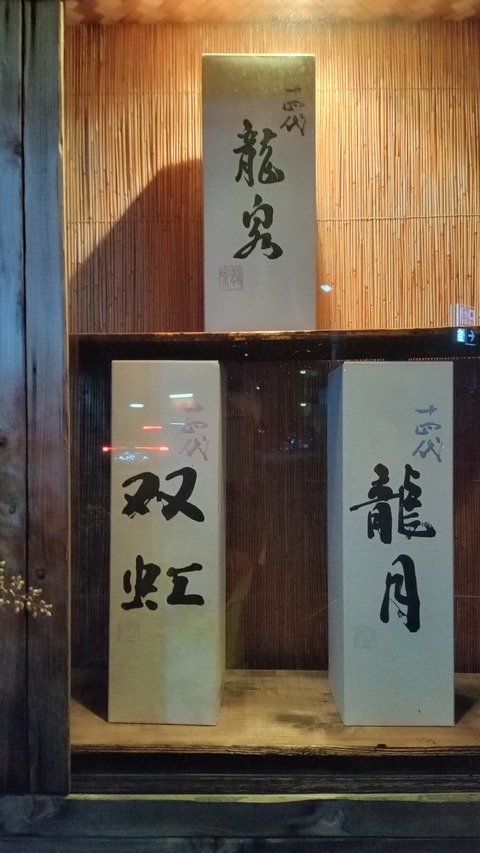 十四代
龍泉
十四代
双虹
十四代
龍月